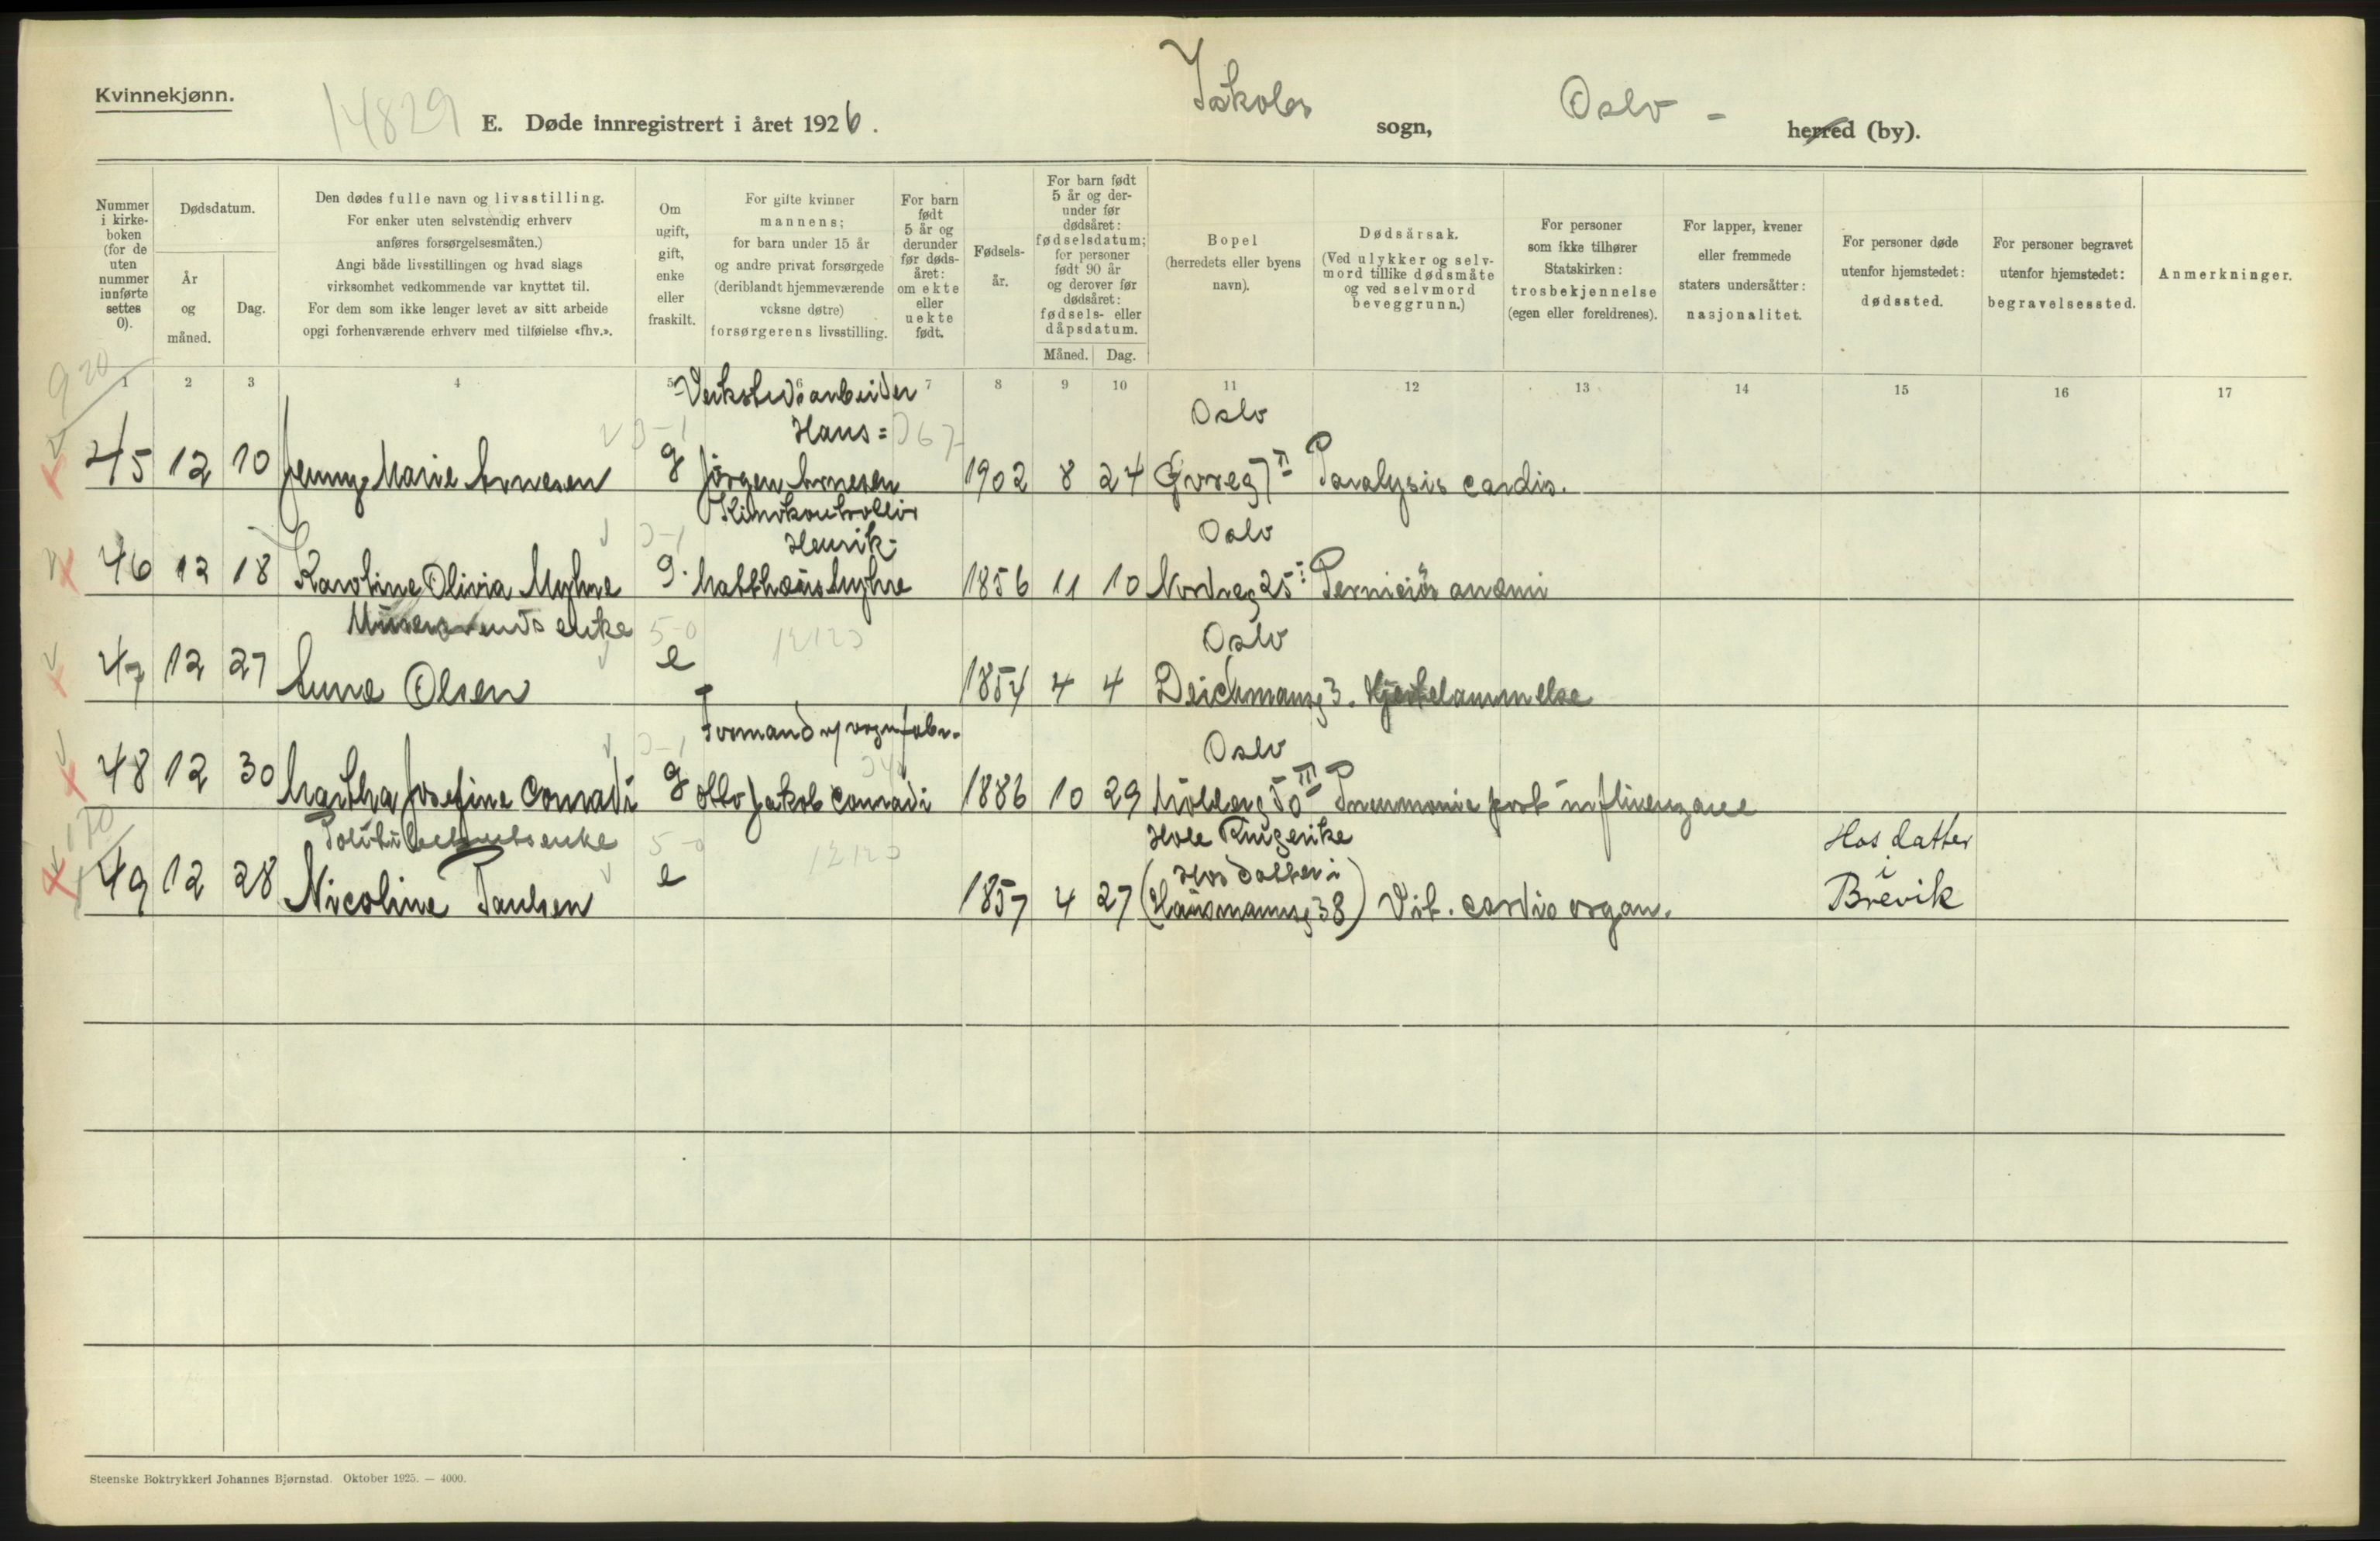 Kvinnekjønn.
14829
E. Døde innregistrert i året 1926.
Jakobs sogn,
Oslo - herred (by).
Nummer i kirke-boken (for de uten nummer innførte settes 0).
Dødsdatum.
År og måned.
Dag.
Den dødes fulle navn og livsstilling.
For enker uten selvstendig erhverv
anføres forsørgelsesmåten.)
Angi både livsstillingen og hvad slags
virksomhet vedkommende var knyttet til.
For dem som ikke lenger levet av sitt arbeide
opgi forhenværende erhverv med tilføielse «fhv.».
Om ugift, gift, enke eller fraskilt.
For gifte kvinner
mannens;
for barn under 15 år
og andre privat forsørgede
(deriblandt hjemmeværende
voksne døtre)
forsørgerens livsstilling.
For barn født 5 år og derunder før døds-året: om ekte eller uekte født.
Fødsels-år.
For barn født 5 år og der-under før dødsåret: fødselsdatum; for personer født 90 år og derover før dødsåret: fødsels- eller dåpsdatum.
Måned. Dag.
Bopel
(herredets eller byens
navn).
Dødsårsak.
(Ved ulykker og selv-
mord tillike dødsmåte
og ved selvmord
beveggrunn.)
For personer
som ikke tilhører
Statskirken:
trosbekjennelse
(egen eller foreldrenes).
For lapper, kvener
eller fremmede
staters undersåtter:
nasjonalitet.
For personer døde
utenfor hjemstedet:
dødssted.
For personer begravet
utenfor hjemstedet:
begravelsessted.
Anmerkninger.
1 2 3 4 5 6 7 8 9 10 11 12 13 14 15 16 17
Verkstedsarbeider
Hans= Oslo
45 12 10 Jenny Marie Arnesen g Jörgen Arnesen 1902 8 24 II Paralysis cordis.
Kinokontrollör
Henrik- Oslo
46 12 18 Karoline Olivia Myhre g. Matthæus Myhre 1856 11 10 Nordreg 25 Perniciös anæmi
enke 5-0 Oslo
47 12 27 Anna Olsen e - 1854 4 4 Deichmansg 3. Hjertelammelse
Formand v/ vognfabr.
Oslo
48 12 30 Martha Josefine Conradi g Otto Jakob Conradi 1886 10 29 Möllerg 50 III Pneumonia post influenzae
Politibetjents enke 5-0 Hole Ringerike Hos datter
(Hos datter i i
49 12 28 Nicoline Paulsen e 1857 4 27 Hausmannsg 38) Vit. cordis organ. Brevik
Steenske Boktrykkeri Johannes Bjørnstad. Oktober 1925. — 4000.